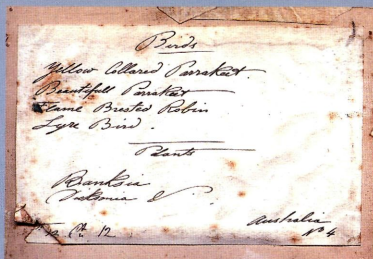 Birds
Yellow Collared Parrakeet.
Beautifull Parrakeet
Flame Brested Robin
Lyre Bird.
Plants
Banksia
&
Australia
12
No 4